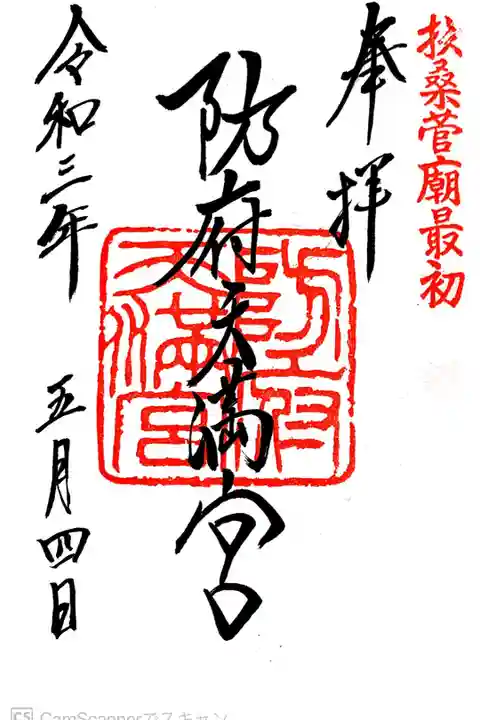 扶桑菅廟最初
奉拝
防府天満宮
令和三年
五月四日
CamScannerでスキャン